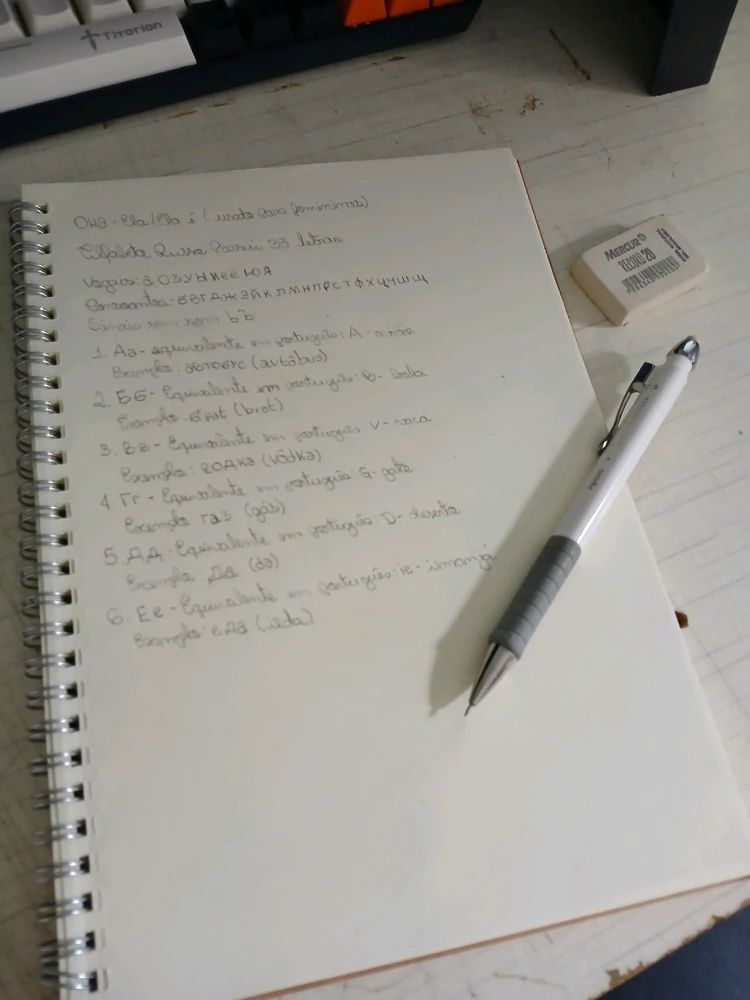 Titarion
MERCUR
RECORD 20
ОНа - Ela/Ela é (usado para femininas)
Alfabeto Russo Possui 33 letras
Vogais: а О Э У Ы И е ё Ю Я
Consoantes: б в г д ж з й к л м н п р с т ф х ц ч ш щ
Sinais sem som ь ъ
1. Аа - equivalente em português: A -
Exemplo: автобус (avtóbus)
2. Бб - Equivalente em português: B - bola
Exemplo: брат (brat)
3. Вв - Equivalente em português V - vaca
Exemplo: водка (vódka)
4 Гг - Equivalente em português G - gato
Exemplo газ (gás)
5. ДД - Equivalente em português: D -
Exemplo: Да (da)
6. Ее - Equivalente em português: ie - iemanjá
Exemplo: еда (ieda)